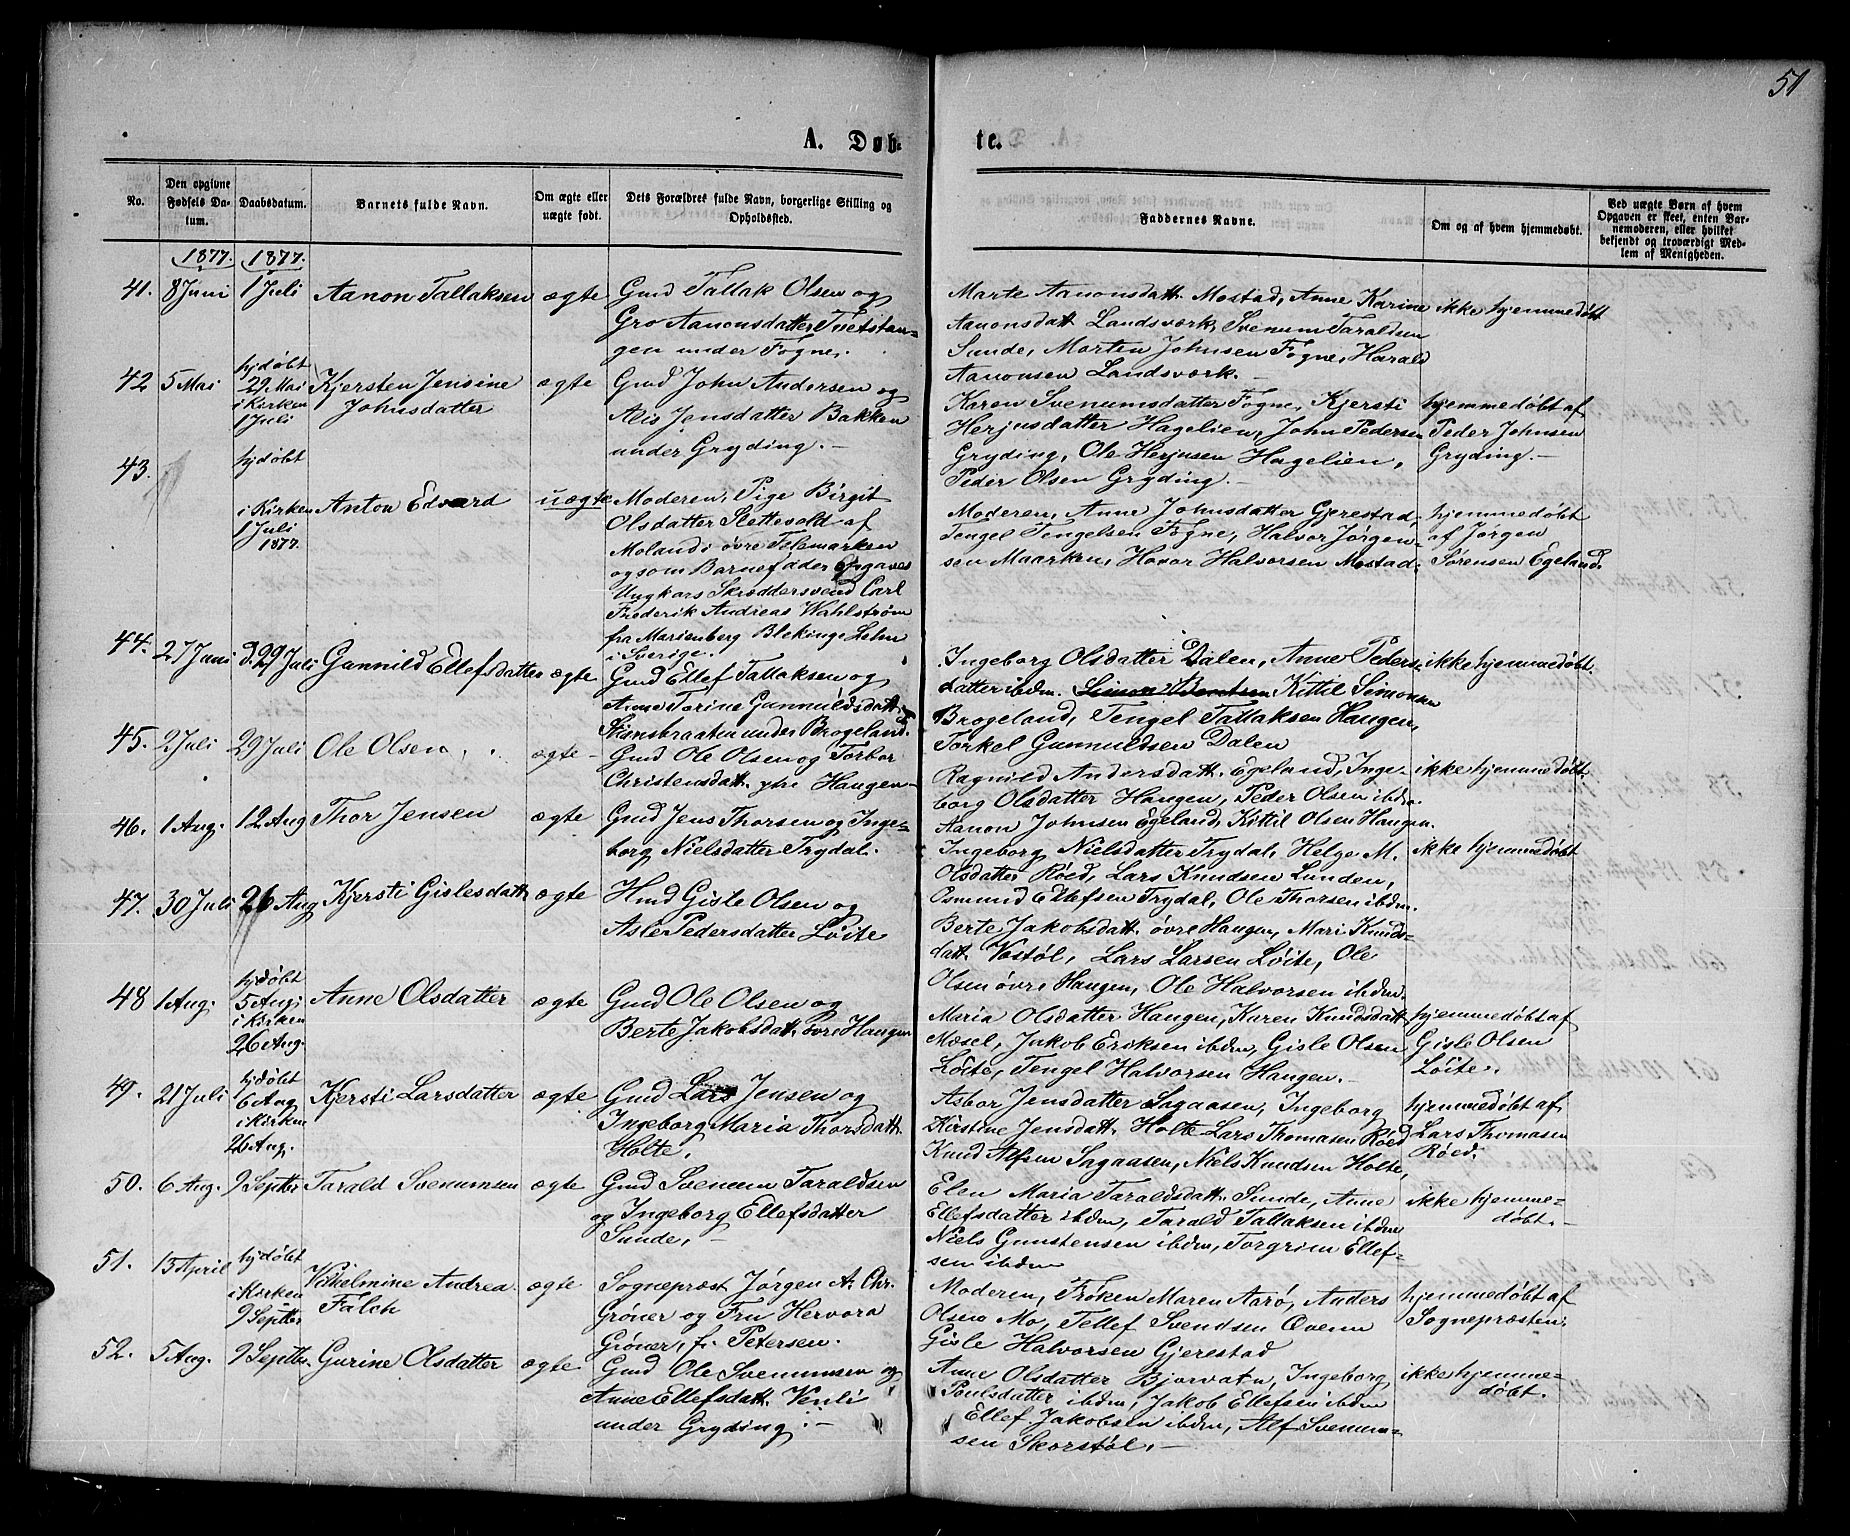 51
A. Døb-
te.
No.
Den opgivne
Fødsels Da-
tum.
Daabsdatum.
Barnets fulde Navn.
Om ægte eller
uægte født.
Dets Forældres fulde Navn, borgerlige Stilling og
Opholdssted.
Faddernes Navne.
Om og af hvem hjemmedøbt.
Ved uægte Børn af hvem
Opgaven er skeet, enten Bar-
nemoderen, eller hvilket
bekjendt og troværdigt Med-
lem af Menigheden.
1877.
1877.
41. 8 Juni 1 Juli Aanon Tallaksen ægte
Gmd Tallak Olsen og
Gro Aanonsdatter Tvetstan-
gen under Fogne.
Marte Aanonsdatt. Mostad, Anne Karine
Aanonsdatt Landsværk, Svenum Taraldsen
Sunde, Morten Johnsen Fogne, Harald
Aanonsen Landsværk.-
ikke hjemmedøbt
42 5 Mai
hjdøbt
29 Mai
i Kirken
1 Juli
Kjersten Jensine
Johnsdatter
ægte
Gmd John Andersen og
Alis Jensdatter Bakken
under Gryding.-
Karen Svenumsdatter Fogne, Kjersti
Herjusdatter Hagelien, John Pedersen
Gryding, Ole Herjusen Hagelien,
Peder Olsen Gryding.-
hjemmedøbt af
Peder Johnsen
Gryding.-
43.
hjdøbt
i Kirken
1 Juli
1877.
Anton Edvard
uægte
Moderen, Pige Birgit
Olsdatter Slettevold af
Moland i øvre Telemarken
og som Barnefader Opgaves
Ungkars Skræddersvend Carl
Frederik Andreas Wahlstrøm
fra Marienberg Blekinge Lehn
i Sverige.
Moderen, Anne Johnsdatter Gjerestad,
Tengel Tengelsen Fogne, Halvor Jørgen-
sen Maarken, Havor Halvorsen Mostad.
hjemmedøbt
af Jørgen
Sørensen Egeland.
44. 27 Juni d. 29 Juli Gunnild Ellefsdatter ægte
Gmd Ellef Tallaksen og
Anne Torine Gunnuldsdatt.
under Brogeland.
Ingeborg Olsdatter Dalen, Anne Peders-
datter ibdm. Kittil Simonsen
Brogeland, Tengel Tallaksen Haugen,
Torkel Gunnuldsen Dalen
ikke hjemmedøbt.
45. 2 Juli 29 Juli Ole Olsen, ægte-
Gmd Ole Olsen og Torbor
Christensdatt. ytre Haugen-
Ragnild Andersdatt. Egeland, Inge-
borg Olsdatter Haugen, Peder Olsen ibdm.
Aanon Johnsen Egeland, Kittil Olsen Haugen.
ikke hjemmedøbt.
46. 1 Aug. 12 Aug Thor Jensen ægte
Gmd Jens Thorsen og Inge-
borg Nielsdatter Trydal.
Ingeborg Nielsdatter Trydal, Helge M.
Olsdatter Røed, Lars Knudsen Lunden,
Osmund Ellefsen Trydal, Ole Thorsen ibdm.
ikke hjemmedøbt
47. 30 Juli 26 Aug Kjersti Gislesdatt. ægte
Hmd Gisle Olsen og
Asle Pedersdatter Løite
Berte Jakobsdatt. øvre Haugen, Mari Knuds-
datt. Vestøl, Lars Larsen Løite, Ole
Olsen øvre Haugen, Ole Halvorsen ibdm.
48 1 Aug.
hjdøbt
5 Aug.
i Kirken
26 Aug.
Anne Olsdatter
ægte
Gmd Ole Olsen og
Berte Jakobsdatt. øvre Haugen
Maria Olsdatter Haugen, Karen Knudsdatt.
Mæsel, Jakob Eriksen ibdm, Gisle Olsen
Løite, Tengel Halvorsen Haugen.-
hjemmedøbt af
Gisle Olsen
Løite.
49. 21 Juli
hjdøbt
6 Aug
i Kirken
26 Aug.
Kjersti Larsdatter
ægte
Gmd Lars Jensen og
Ingeborg Maria Thorsdatt.
Holte.
Asbor Jensdatter Sagaasen, Ingeborg
Kirstine Jensdatt. Holte Lars Thomasen Røed
Knud Alfsen Sagaasen, Niels Knudsen Holte,
hjemmedøbt af
Lars Thomasen
Røed.
50. 6 Aug. 9 Septbr Tarald Svenumsen ægte
Gmd Svenum Taraldsen
og Ingeborg Ellefsdatter
Sunde.-
Elen Maria Taraldsdatt. Sunde, Anne
Ellefsdatter ibdm, Tarald Tallaksen ibdm
Niels Gunstensen ibdm, Torgrim Ellef-
sen ibdm
ikke hjemme-
døbt.-
51. 13 April
hjdøbt
i Kirken
9 Septbr
Vilhelmine Andrea
Falch
ægte
Sognepræst Jørgen A. Chr.
Grøner og Fru Hervora
Grøner, f. Petersen.
Moderen, Frøken Maren Aarø, Anders
Olsen Mo, Tellef Svendsen
Gisle Halvorsen Gjerestad
hjemmedøbt af
Sognepræsten.
52. 5 Aug. 9 Septbr. Gurine Olsdatter ægte
Gmd Ole Svenumsen og
Anne Ellefsdatt. Venli
under Gryding.-
Anne Olsdatter Bjorvatn, Ingeborg
Poulsdatter ibdm, Jakob Ellefsen ibdm
Ellef Jakobsen ibdm, Alf Svenum-
sen Skorstøl.-
ikke hjemme-
døbt.